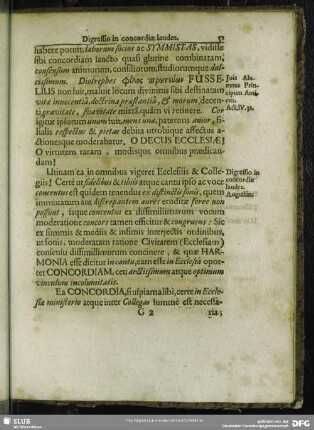 Digressio in concordiæ laudes. 51
habere potuit, laborum socios ac SYMMISTAS, vidisse
sibi concordiam sancto quasi glutine combinatam,
consensum animorum, consiliorum, studiorumque dul-
cissimum. Diotrephes FÜSSE-
LIUS non fuit, maluit locum divinitus sibi destinatum
vitæ innocentiâ, doctrinæ præstantiâ, & morum, decen-
ti gravitate, suavitate mixtâ, quàm vi retinere. Cor
igitur ipsorum unum fuit, mens una, paternus amor, fi-
lialis respectus & pietas debita utrobique affectus a-
ctionesque moderabatur, O DECUS ECCLESIÆ!
O virtutem raram, modisque omnibus prædican-
dam!
Utinam ea in omnibus vigeret Ecclesiis & Colle-
giis! Certè ut fidelibus & tibiis atque cantu ipso ac voce
concentus est quidem tenendus ex distinctis sonis, quem
immutatum aut discrepantem aures eruditæ ferre non
possunt, isque concentus ex dissimilliarum vocum
moderatione concors tamen efficitur & congruens: Sic
ex summis & mediis & infimis interjectis ordinibus,
ut sonis, moderatam ratione Civitatem (Ecclesiam)
consensu dissimilliorum concinere, & quæ HAR-
MONIA esse dicitur in cantu, eam esse in Ecclesiâ opor-
tet CONCORDIAM, ceu arctissimum atque optimum
vinculum incolumitatis.
Ea CONCORDIA, si uspiam alibi, certè in Eccle-
siæ ministerio atque inter Collegas summè est necessa-
G 2 ria;
Act. IV. 32.
Digressio in
concordiæ
laudes.
SLUB
DFG